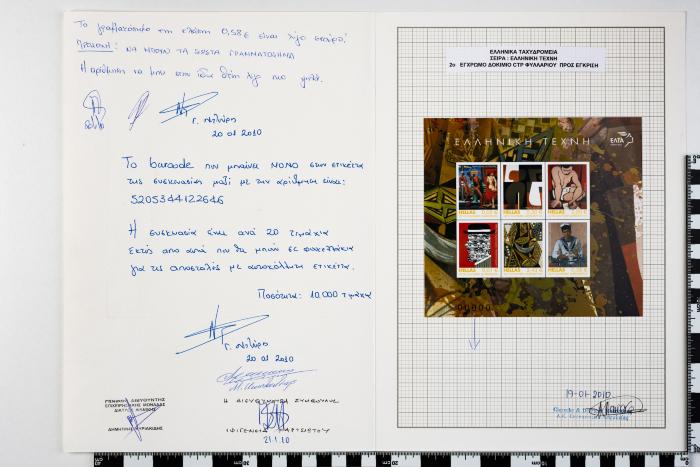 Το γραμματόσημο της κλάσης 0,58€ είναι λίγο σκούρο!
ΠΡΟΣΟΧΗ: ΝΑ ΜΠΟΥΝ ΤΑ ΣΩΣΤΑ ΓΡΑΜΜΑΤΟΣΗΜΑ
Η αρίθμηση να μπει στην ίδια θέση λίγο πιο
20/1/10
Γ. Ντίγρε
20 01 2010
Το barcode που μπαίνει ΜΟΝΟ στην ετικέτα
της συσκευασίας μαζί με την αρίθμηση είναι:
5205344122646
Η συσκευασία είναι ανά 20 τεμάχια
Εκτός από αυτά που θα μπουν σε φακελάκια
για τις αποστολές με αυτοκόλλητη ετικέτα.
Ποσότητα: 10.000 τεμάχια
20 01 2010
ΓΕΝΙΚΟΣ ΔΙΕΥΘΥΝΤΗΣ
ΕΠΙΧΕΙΡΗΣΙΑΚΗΣ ΜΟΝΑΔΑΣ
ΔΗΜΗΤΡΗΣ ΚΥΡΙΑΚΙΔΗΣ
Η ΔΙΕΥΘΥΝΟΥΣΑ ΣΥΜΒΟΥΛΟΣ
ΙΦΙΓΕΝΕΙΑ
21.1.10
ΕΛΛΗΝΙΚΑ ΤΑΧΥΔΡΟΜΕΙΑ
ΣΕΙΡΑ : ΕΛΛΗΝΙΚΗ ΤΕΧΝΗ
2ο ΕΓΧΡΩΜΟ ΔΟΚΙΜΙΟ CTP ΦΥΛΛΑΡΙΟΥ ΠΡΟΣ ΕΓΚΡΙΣΗ
ΕΛΛΗΝΙΚΗ ΤΕΧΝΗ
ΕΛΤΑ
HELLAS HELLAS HELLAS
HELLAS HELLAS HELLAS
00000
19-01-2010